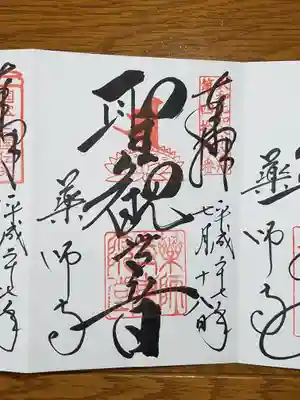 奉拝
平成二十七年
七月十八日
聖観世音
薬師寺
奉拝
平成二十七年
薬師寺